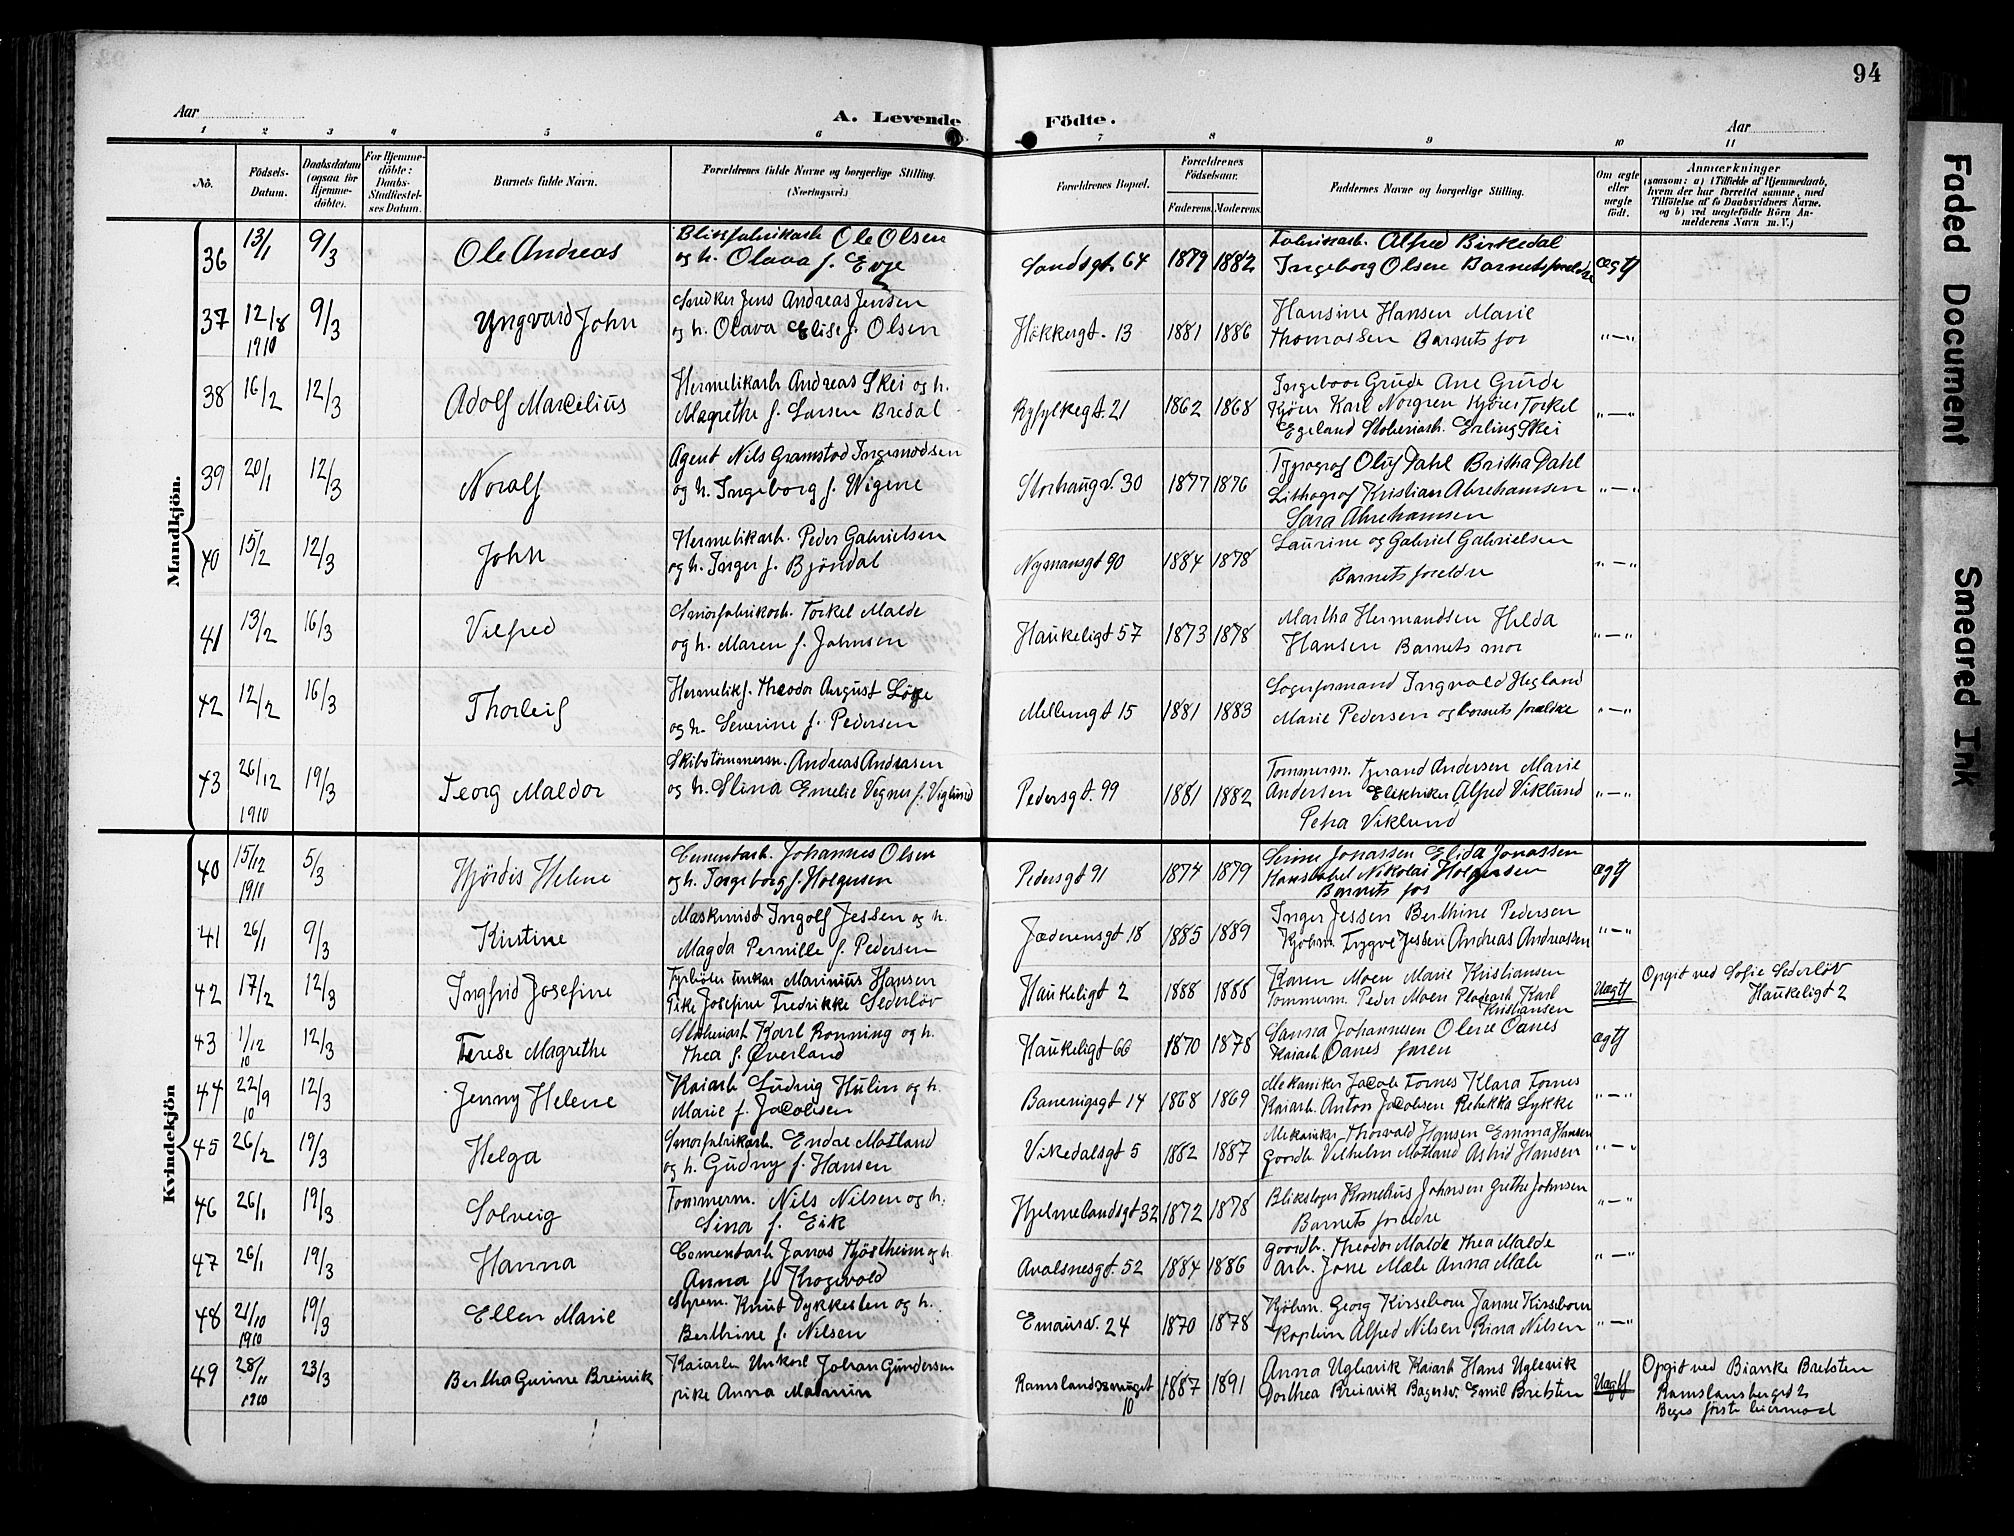 94
Aar
A. Levende
Födte.
Aar
1 2 3 4 5 6 7 8 9 10 11
Nö.
Födsels-
Datum.
Daabsdatum
(ogsaa for
Hjemme-
döbte).
For Hjemme-
döbte:
Daabs-
Stadfæstel-
ses Datum.
Barnets fulde Navn.
Forældrenes fulde Navne og borgerlige Stilling.
(Næringsvei.)
Forældrenes Bopæl.
Forældrenes
Födselsaar.
Faderens. Moderens.
Faddernes Navne og borgerlige Stilling.
Om ægte
eller
uægte
födt.
Anmærkninger
(saasom: a) i Tilfælde af Hjemmedaab,
hvem der har forrettet samme, med
Tilföielse af to Daabsvidners Navne,
og b) ved uægtefödte Börn An-
melderens Navn m. V.)
Mandkjön.
36 13/1 9/3 Ole Andreas
Ole Olsen
og h. Olava f. Evje
Sandsgt. 64 1879 1882
Fabrikarb. Alfred Birkedal
Ingeborg Olsen Barnets foreldre
ægtf
37 12/8 1910 9/3 Yngvard John
Snedker Jens Andreas Jensen
og h. Olava Elise f. Olsen
Høkkergt. 13 1881 1886
Hansine Hansen Marie
Thomassen Barnets far
„—„
38 16/2 12/3 Adolf Marcelius
Hermetikarb Andreas Skei og h.
Magrethe f. Larsen Bredal
Ryfylkegt. 21 1862 1868
Ingeborg Grude Ane Grude
Karl Norgren Torkel
Egeland Erling Skei
„—„
39 20/1 12/3 Noralf
Agent Nils Gramstad Ingemodsen
og h. Ingeborg f. Wigene
Storhaugv. 30 1877 1876
Typograf Oluf Dahl Britha Dahl
Lithograf Kristian Abrahamsen
Sara Abrahamsen
„—„
40 15/2 12/3 John
Hermetikarb. Peder Gabrielsen
og h. Inger f. Bjöndal
Nymansgt 90 1884 1878
Laurine og Gabriel Gabrielsen
Barnets foreldre
„—„
41 13/2 16/3 Vilfred
Torkel Malde
og h. Maren f. Johnsen
Haukeligt 57 1873 1878
Martha Hermandsen Hilda
Hansen Barnets mor
„—„
42 12/2 16/3 Thorleif
Hermetikf. Theodor August
og h. Severine f. Pedersen
Mellemgt 15 1881 1883
Ingvald Hegland
Marie Pedersen og barnets foreldre
„—„
43 26/12 1910 19/3 Georg Maldor
Skibstømmerm. Andreas Andreasen
og h. Stina Emelie Vegner f. Viglund
Pedersgt. 99 1881 1882
Tømmerm. Andersen Marie
Andersen Elektriker Alfred Viklund
Petra Viklund
„—„
Kvindekjön
40 15/12 1911 5/3 Hjördis Helene
Cementarb. Johannes Olsen
og h. Ingeborg f. Holgersen
Pedersgt 91 1874 1879
Jonassen Elida Jonassen
Nikolai Holgersen
Barnets far
ægtf
41 26/1 9/3 Kirstine
Maskinist Ingolf Jessen og h.
Magda Pernille f. Pedersen
Jæderensgt 18 1885 1889
Inger Jessen Berthine Pedersen
Kjøbm. Trygve Jessen Andreas Andreassen
„—„
42 17/2 12/3 Ingfrid Josefine
Fyrbøter unkar Marinius Hansen
Pike Josefine Fredrikke Sederløv
Haukeligt 2 1888 1888
Karen Moen Marie Kristiansen
Tømmerm. Peder Moen Karl
Kristiansen
Uægtf
Opgit ved Sofie Sederløv
Haukeligt 2
43 1/12 10 12/3 Terese Magrethe
Karl Rønning og h.
Thea f. Øverland
Haukeligt 66 1870 1878
Sanna Johannesen Olene Oanes
Kaiarb Oanes faren
ægtf
44 22/9 10 12/3 Jenny Helene
Kaiarb Ludvig Hulin og h.
Marie f. Jacobsen
Banevigsgt 14 1868 1869
Mekaniker Jacob Tornes Klara Tornes
Kaiarb. Anton Jacobsen Rebekka Lykke
„—„
45 26/2 19/3 Helga
Endre Matland
og h. Gudny f. Hansen
Vikedalsgt 5 1882 1887
Mekaniker Thorvald Hansen Emma Hansen
Gaardb. Vilhelm Matland Astrid Hansen
„—„
46 26/1 19/3 Solveig
Tømmerm. Nils Nilsen og h.
Sina f. Eik
Hjelmelandsgt 32 1872 1878
Kornelius Johnsen Grethe Johnsen
Barnets foreldre
„—„
47 26/1 19/3 Hanna
Cementarb Jonas Tjöstheim og h.
Anna f. Krogevold
Avalsnesgt 52 1884 1886
Gaardb. Theodor Malde Thea Malde
Arb. Jone Mæle Anna Mæle
„—„
48 21/10 1910 19/3 Ellen Marie
Styrm. Knut Dykkesten og h.
Berthine f. Nilsen
Emausv. 24 1870 1878
Kjøbm. Georg Kirsebom Janne Kirsebom
Kaptein Alfred Nilsen Rina Nilsen
„—„
49 28/11 1910 23/3 Bertha Gurine Breivik
Kaiarb Unkarl Johan Gundersen
pike Anna Malmin
Ramslandssmuget
10
1887 1891
Anna Uglevik Kaiarb Hans Uglevik
Dorthea Breivik Bagersv. Emil Bretsten
Uægtf
Opgit ved Bianke Bretsten
2
Beges første leiermaal
Faded Document
Smeared Ink